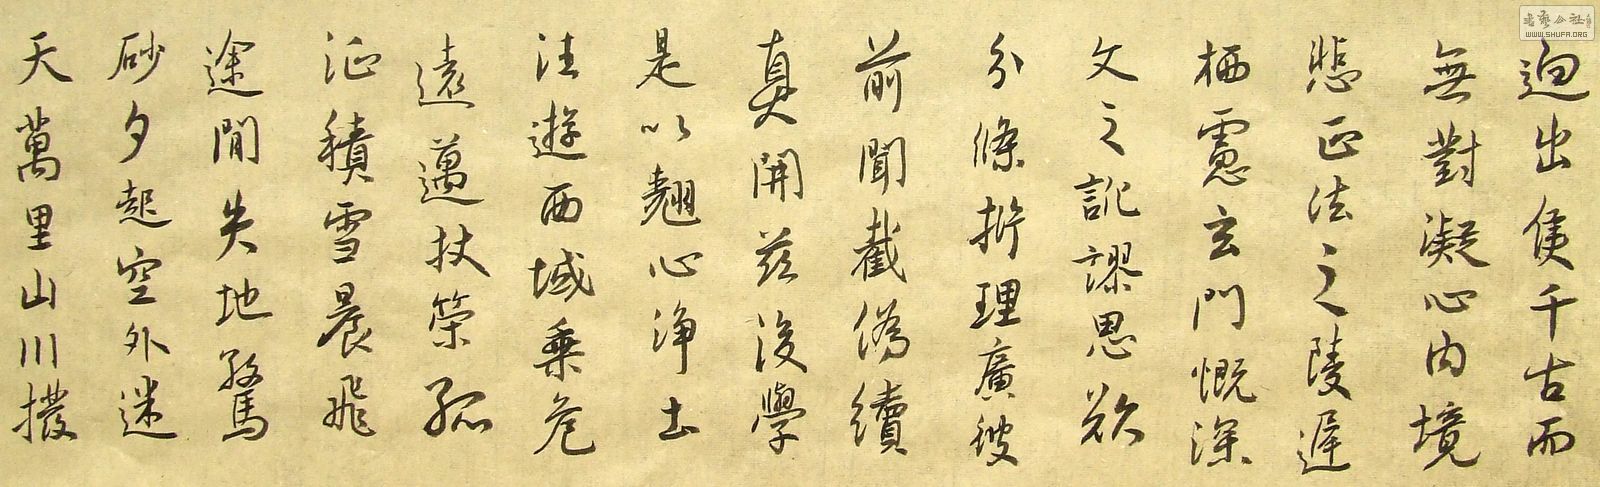 迥出隻千古而
無對凝心內境
悲正法之陵遲
栖慮玄門慨深
文之訛謬思欲
分條析理廣彼
前聞截偽續
真開茲後學
是以翹心淨土
往遊西域乘危
遠邁杖策孤
征積雪晨飛
途閒失地驚
砂夕起空外迷
天萬里山川撥
書藝公社
WWW.SHUFA.ORG